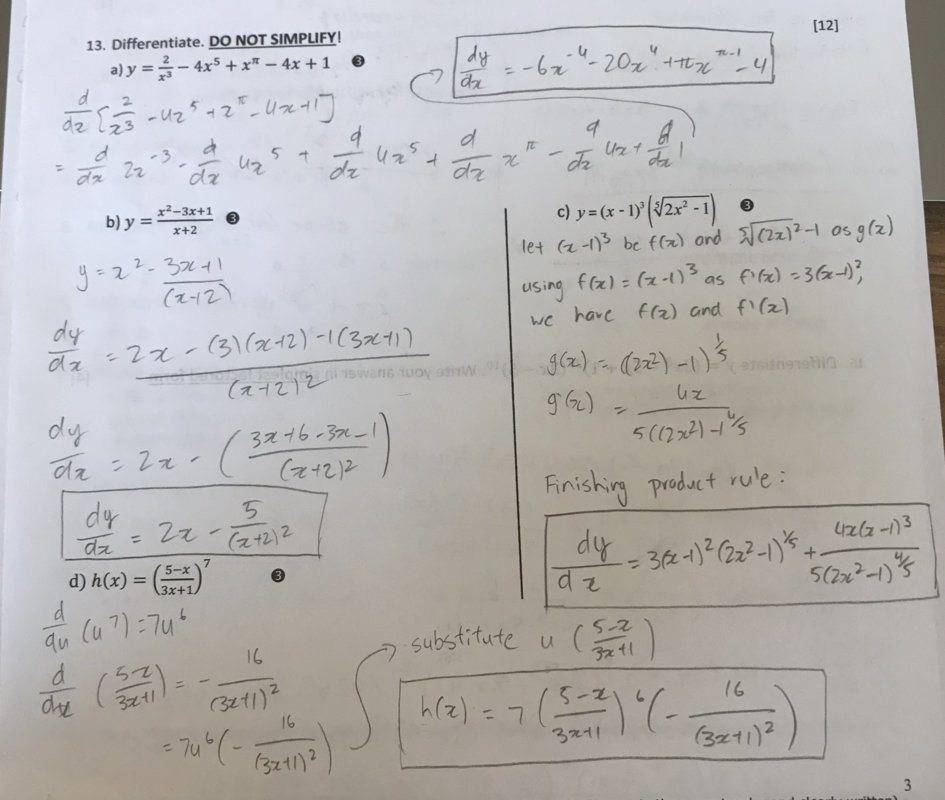 [12]
13. Differentiate. DO NOT SIMPLIFY!
a) y = 2/x³ − 4x⁵ + x^π − 4x + 1 ❸
dy/dx = −6x⁻⁴ − 20x⁴ + πx^(π−1) − 4
d/dx [2/x³ − 4x⁵ + x^π − 4x + 1]
= d/dx 2x⁻³ − d/dx 4x⁵ + d/dx 4x⁵ + d/dx x^π − d/dx 4x + d/dx 1
b) y = (x²−3x+1)/(x+2) ❸
y = x² − (3x+1)/(x+2)
dy/dx = 2x − (3)(x+2) − 1(3x+1)/(x+2)²
dy/dx = 2x − ((3x+6−3x−1)/(x+2)²)
dy/dx = 2x − 5/(x+2)²
c) y = (x − 1)³(⁵√(2x² − 1)) ❸
let (x−1)³ be f(x) and ⁵√(2x)² − 1 as g(x)
using f(x) = (x−1)³ as f'(x) = 3(x−1)²,
we have f(x) and f'(x)
g(x) = ((2x²) − 1)^1/5
g'(x) = 4x/5((2x²) − 1^4/5
Finishing product rule:
dy/dx = 3(x−1)²(2x²−1)^1/5 + 4x(x−1)³/5(2x²−1)^4/5
d) h(x) = ((5−x)/(3x+1))⁷ ❸
d/du (u⁷) = 7u⁶
d/dx ((5−x)/(3x+1)) = − 16/(3x+1)²
= 7u⁶(− 16/(3x+1)²)
substitute u ((5−x)/(3x+1))
h(x) = 7((5−x)/(3x+1))⁶(− 16/(3x+1)²)
3